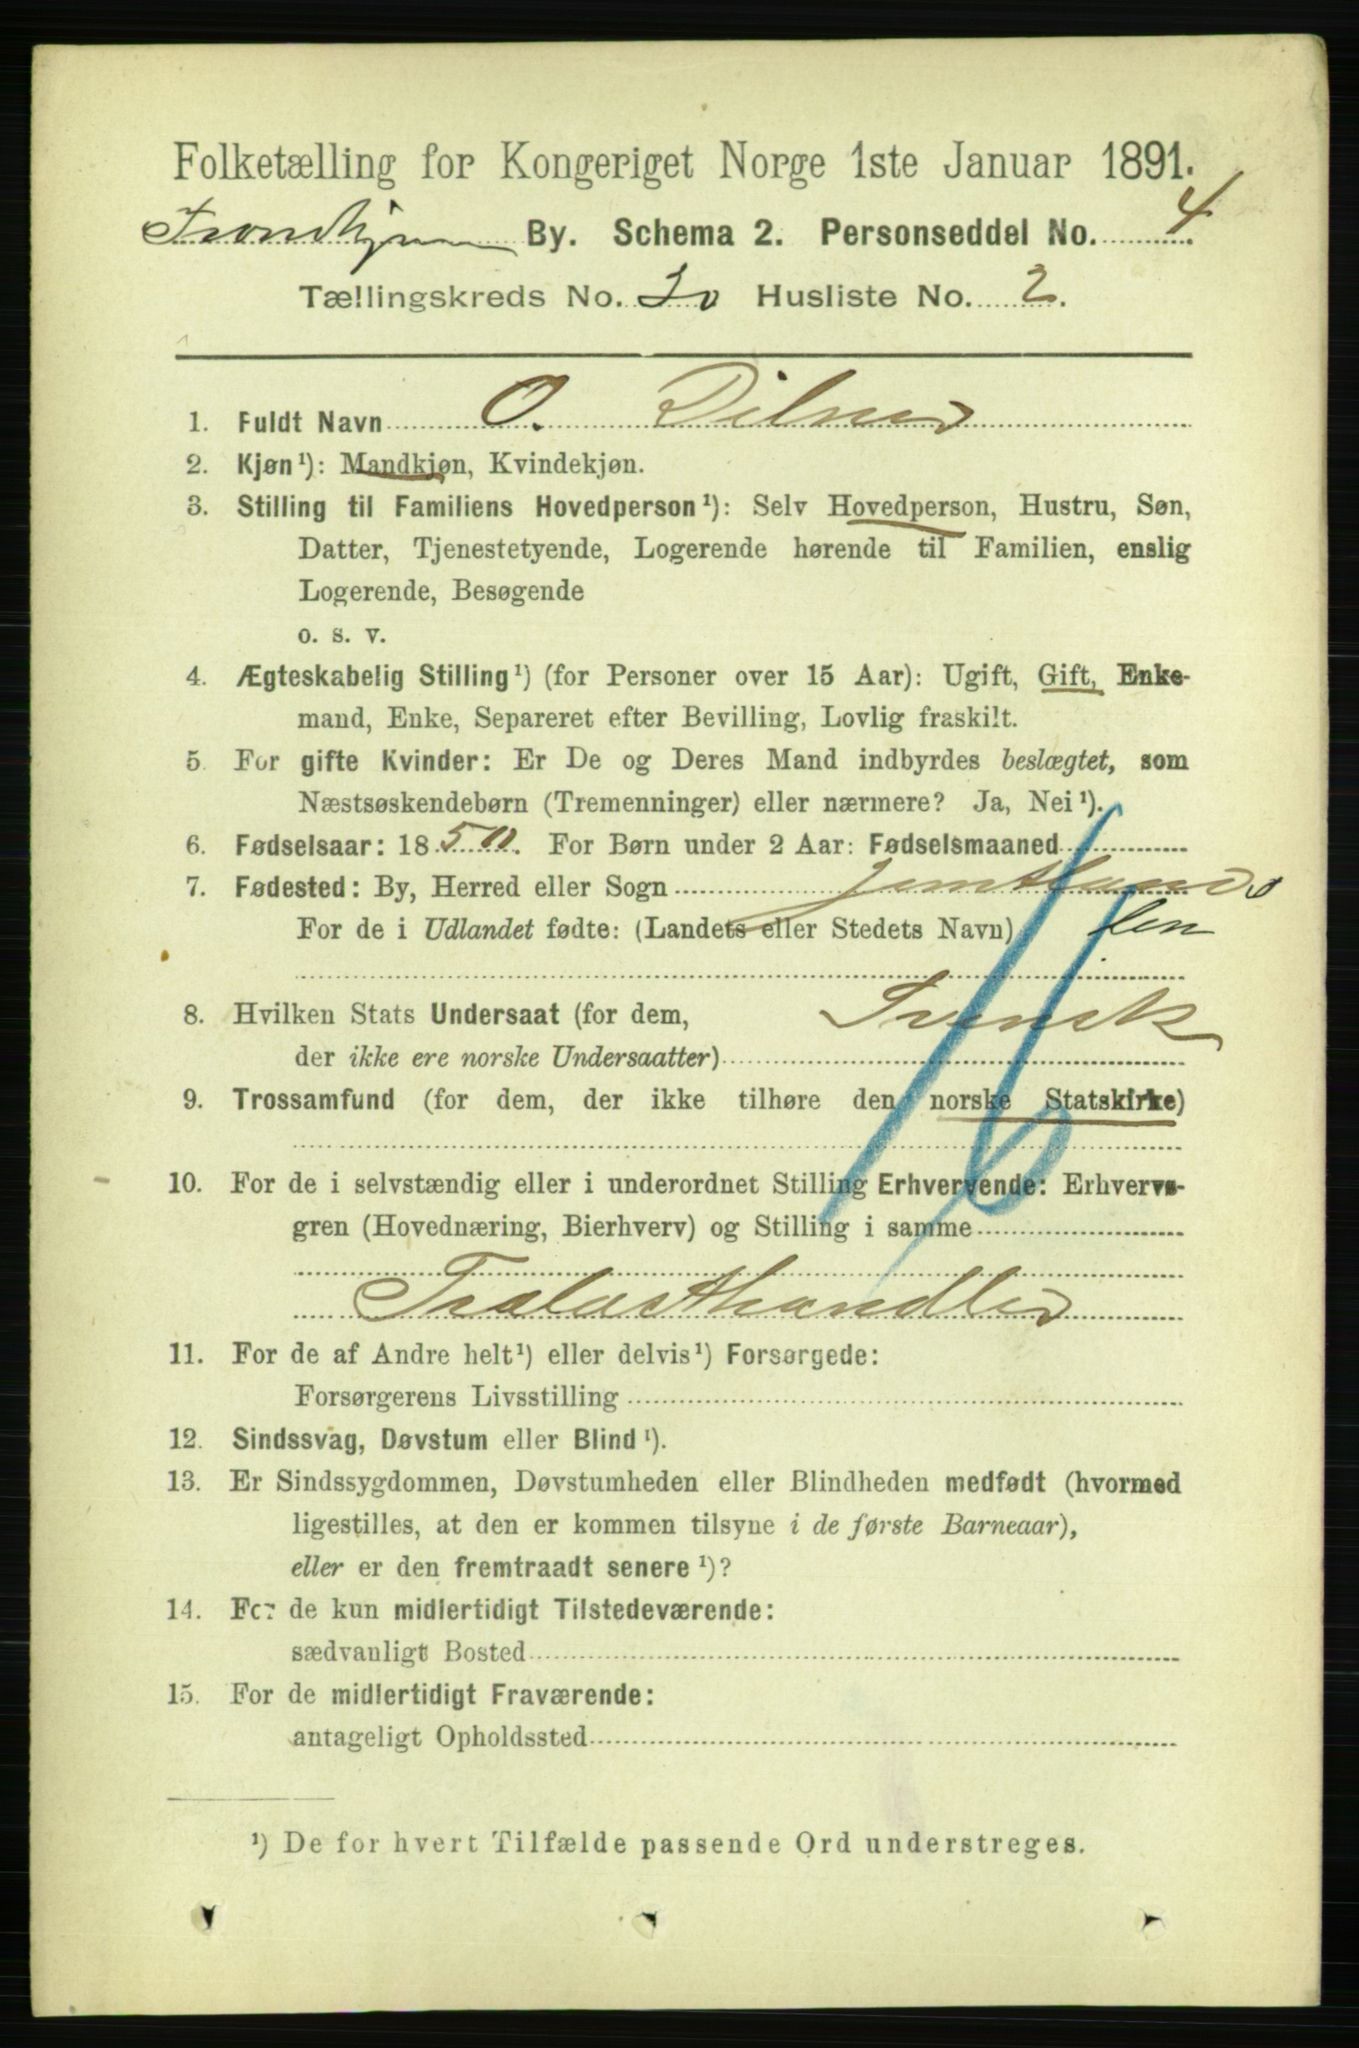 Folketælling for Kongeriget Norge 1ste Januar 1891.
Trondhjem By. Schema 2. Personseddel No. 4
Tællingskreds No. 20 Husliste No. 2.
1. Fuldt Navn O. Dilner
2. Kjøn¹): Mandkjøn, Kvindekjøn.
3. Stilling til Familiens Hovedperson¹): Selv Hovedperson, Hustru, Søn,
Datter, Tjenestetyende, Logerende hørende til Familien, enslig
Logerende, Besøgende
o. s. v.
4. Ægteskabelig Stilling¹) (for Personer over 15 Aar): Ugift, Gift, Enke-
mand, Enke, Separeret efter Bevilling, Lovlig fraskilt.
5. For gifte Kvinder: Er De og Deres Mand indbyrdes beslægtet, som
Næstsøskendebørn (Tremenninger) eller nærmere? Ja, Nei¹).
6. Fødselsaar: 1850. For Børn under 2 Aar: Fødselsmaaned
7. Fødested: By, Herred eller Sogn Jemtlands
For de i Udlandet fødte: (Landets eller Stedets Navn) len
8. Hvilken Stats Undersaat (for dem, Svensk
der ikke ere norske Undersaatter)
9. Trossamfund (for dem, der ikke tilhøre den norske Statskirke)
10. For de i selvstændig eller i underordnet Stilling Erhvervende: Erhvervs-
gren (Hovednæring, Bierhverv) og Stilling i samme
Trælasthandler
11. For de af Andre helt¹) eller delvis¹) Forsørgede:
Forsørgerens Livsstilling
12. Sindssvag, Døvstum eller Blind¹).
13. Er Sindssygdommen, Døvstumheden eller Blindheden medfødt (hvormed
ligestilles, at den er kommen tilsyne i de første Barneaar),
eller er den fremtraadt senere¹)?
14. For de kun midlertidigt Tilstedeværende:
sædvanligt Bosted
15. For de midlertidigt Fraværende:
antageligt Opholdssted
¹) De for hvert Tilfælde passende Ord understreges.